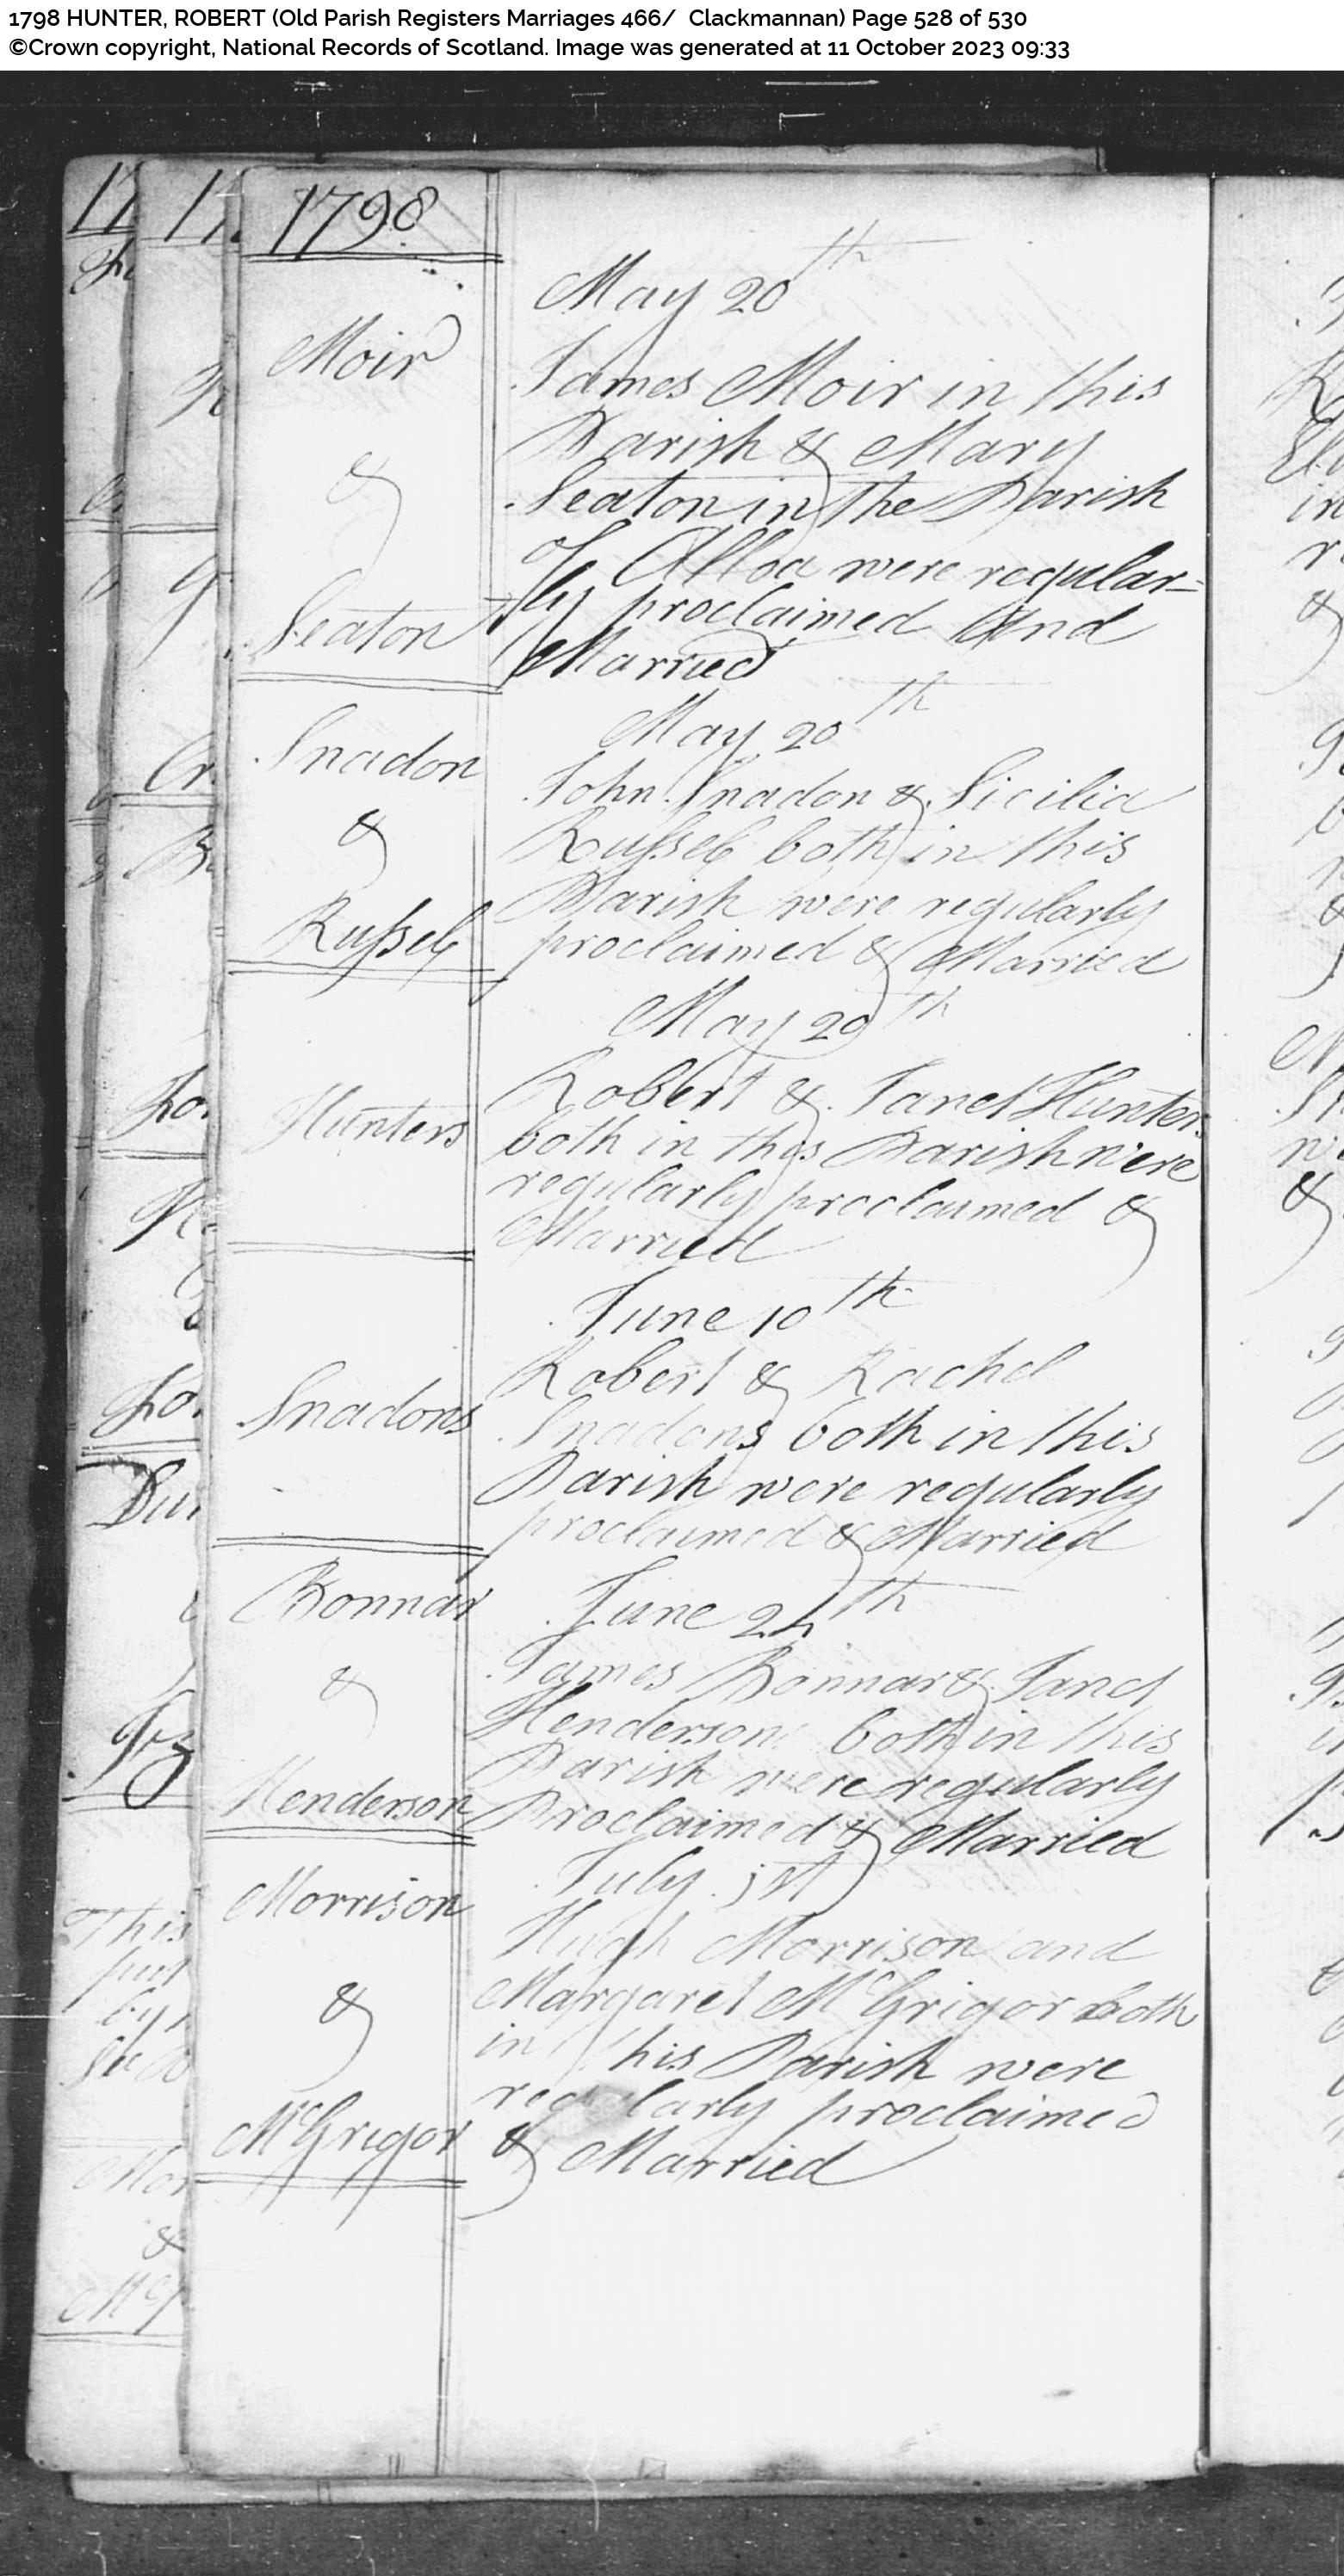 1798 HUNTER, ROBERT (Old Parish Registers Marriages 466/ Clackmannan) Page 528 of 530
©Crown copyright, National Records of Scotland. Image was generated at 11 October 2023 09:33
1798
May 20th
Moir
&
Seaton
James Moir in this
Parish & Mary
Seaton in the Parish
of Alloa were regular=
ly proclaimed And
Married
May 20th
Snadon
&
Russel
John Snadon & Sicilia
Russel both in this
Parish were regularly
proclaimed & Married
May 20th
Hunters
Robert & Janet Hunters
both in this Parish were
regularly proclaimed &
Married
June 10th
Snadons
Robert & Rachel
Snadons both in this
Parish were regularly
proclaimed & Married
Bonnar
&
Henderson
June 24th
James Bonnar & Janet
Henderson both in this
Parish were regularly
Proclaimed & Married
July 1st
Morrison
&
McGrigor
Hugh Morrison and
Margaret McGrigor both
in this Parish were
regularly proclaimed
& Married